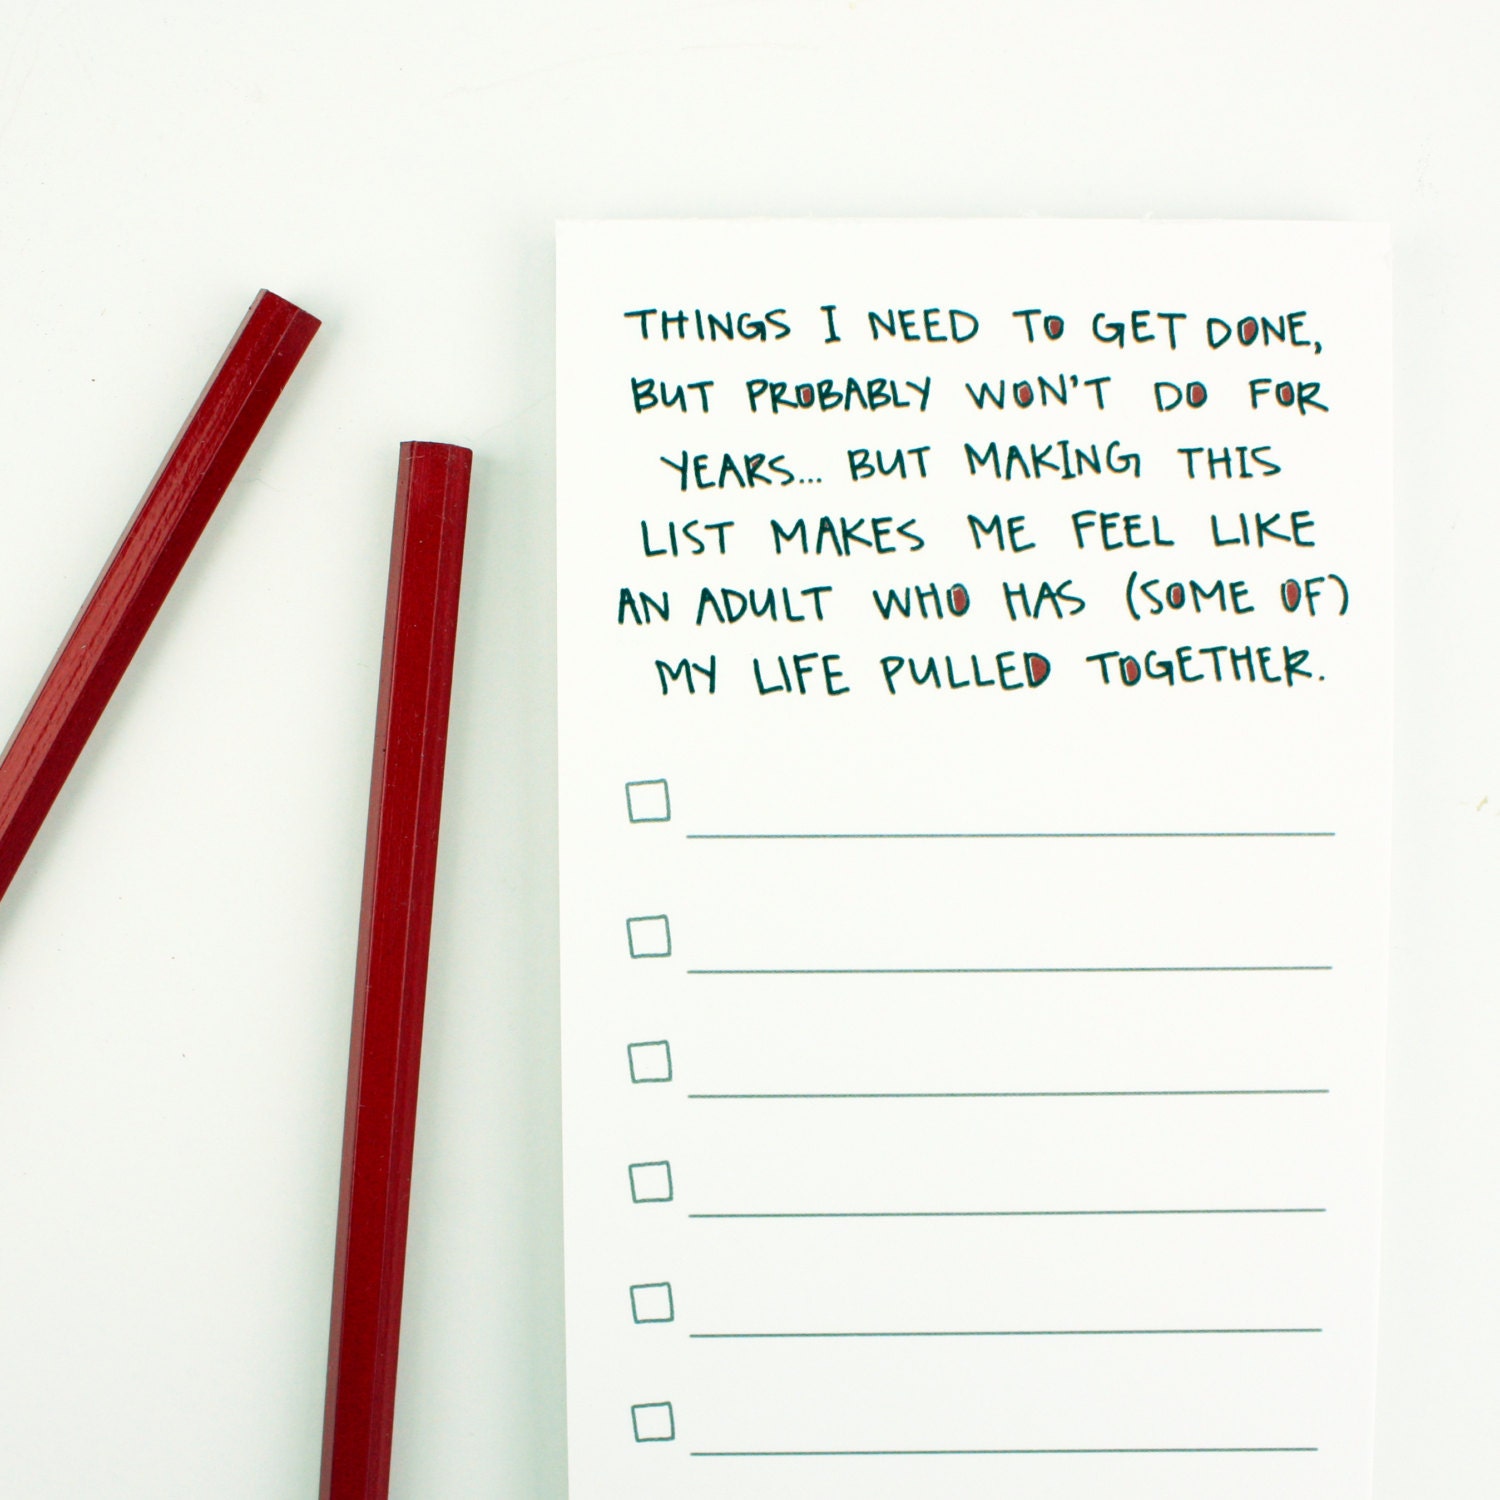 THINGS I NEED TO GET DONE,
BUT PROBABLY WON'T DO FOR
YEARS... BUT MAKING THIS
LIST MAKES ME FEEL LIKE
AN ADULT WHO HAS (SOME OF)
MY LIFE PULLED TOGETHER.